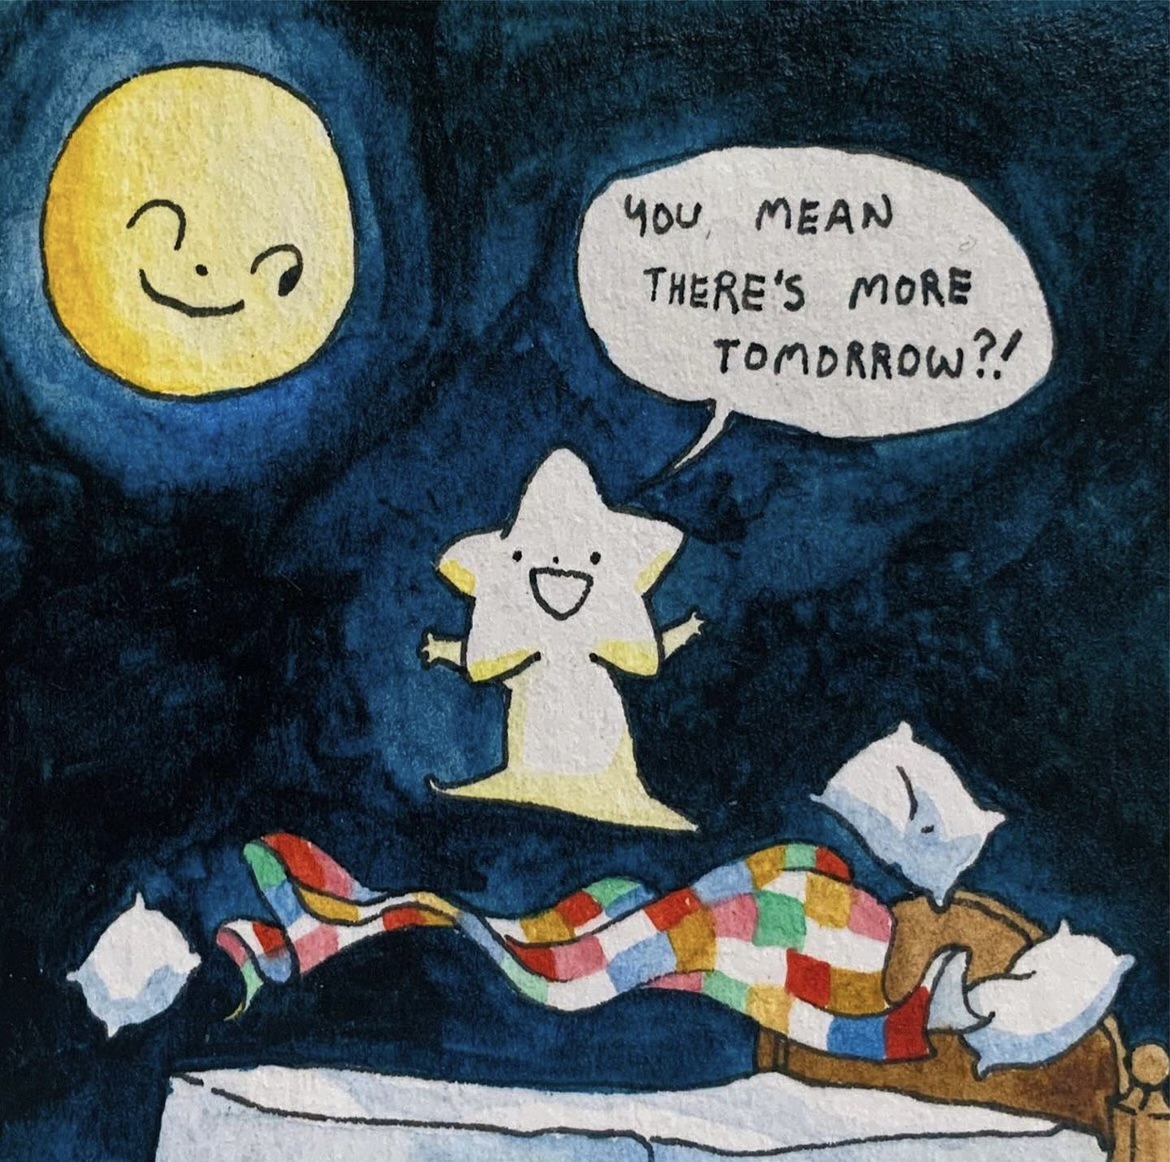 YOU MEAN
THERE'S MORE
TOMORROW?!